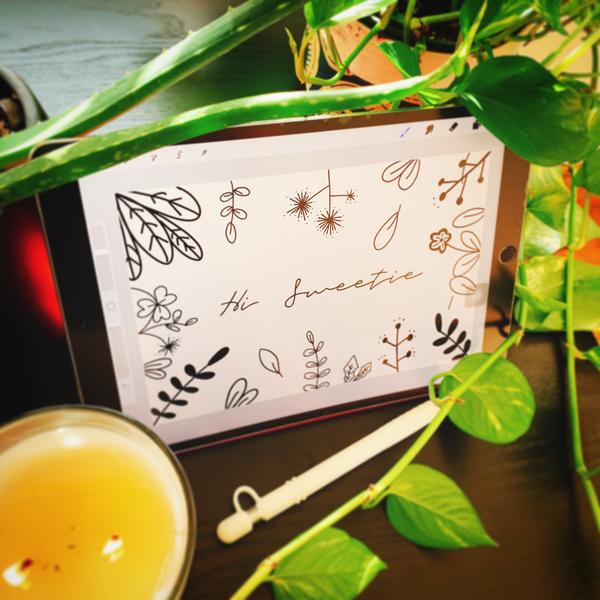 Hi Sweetie